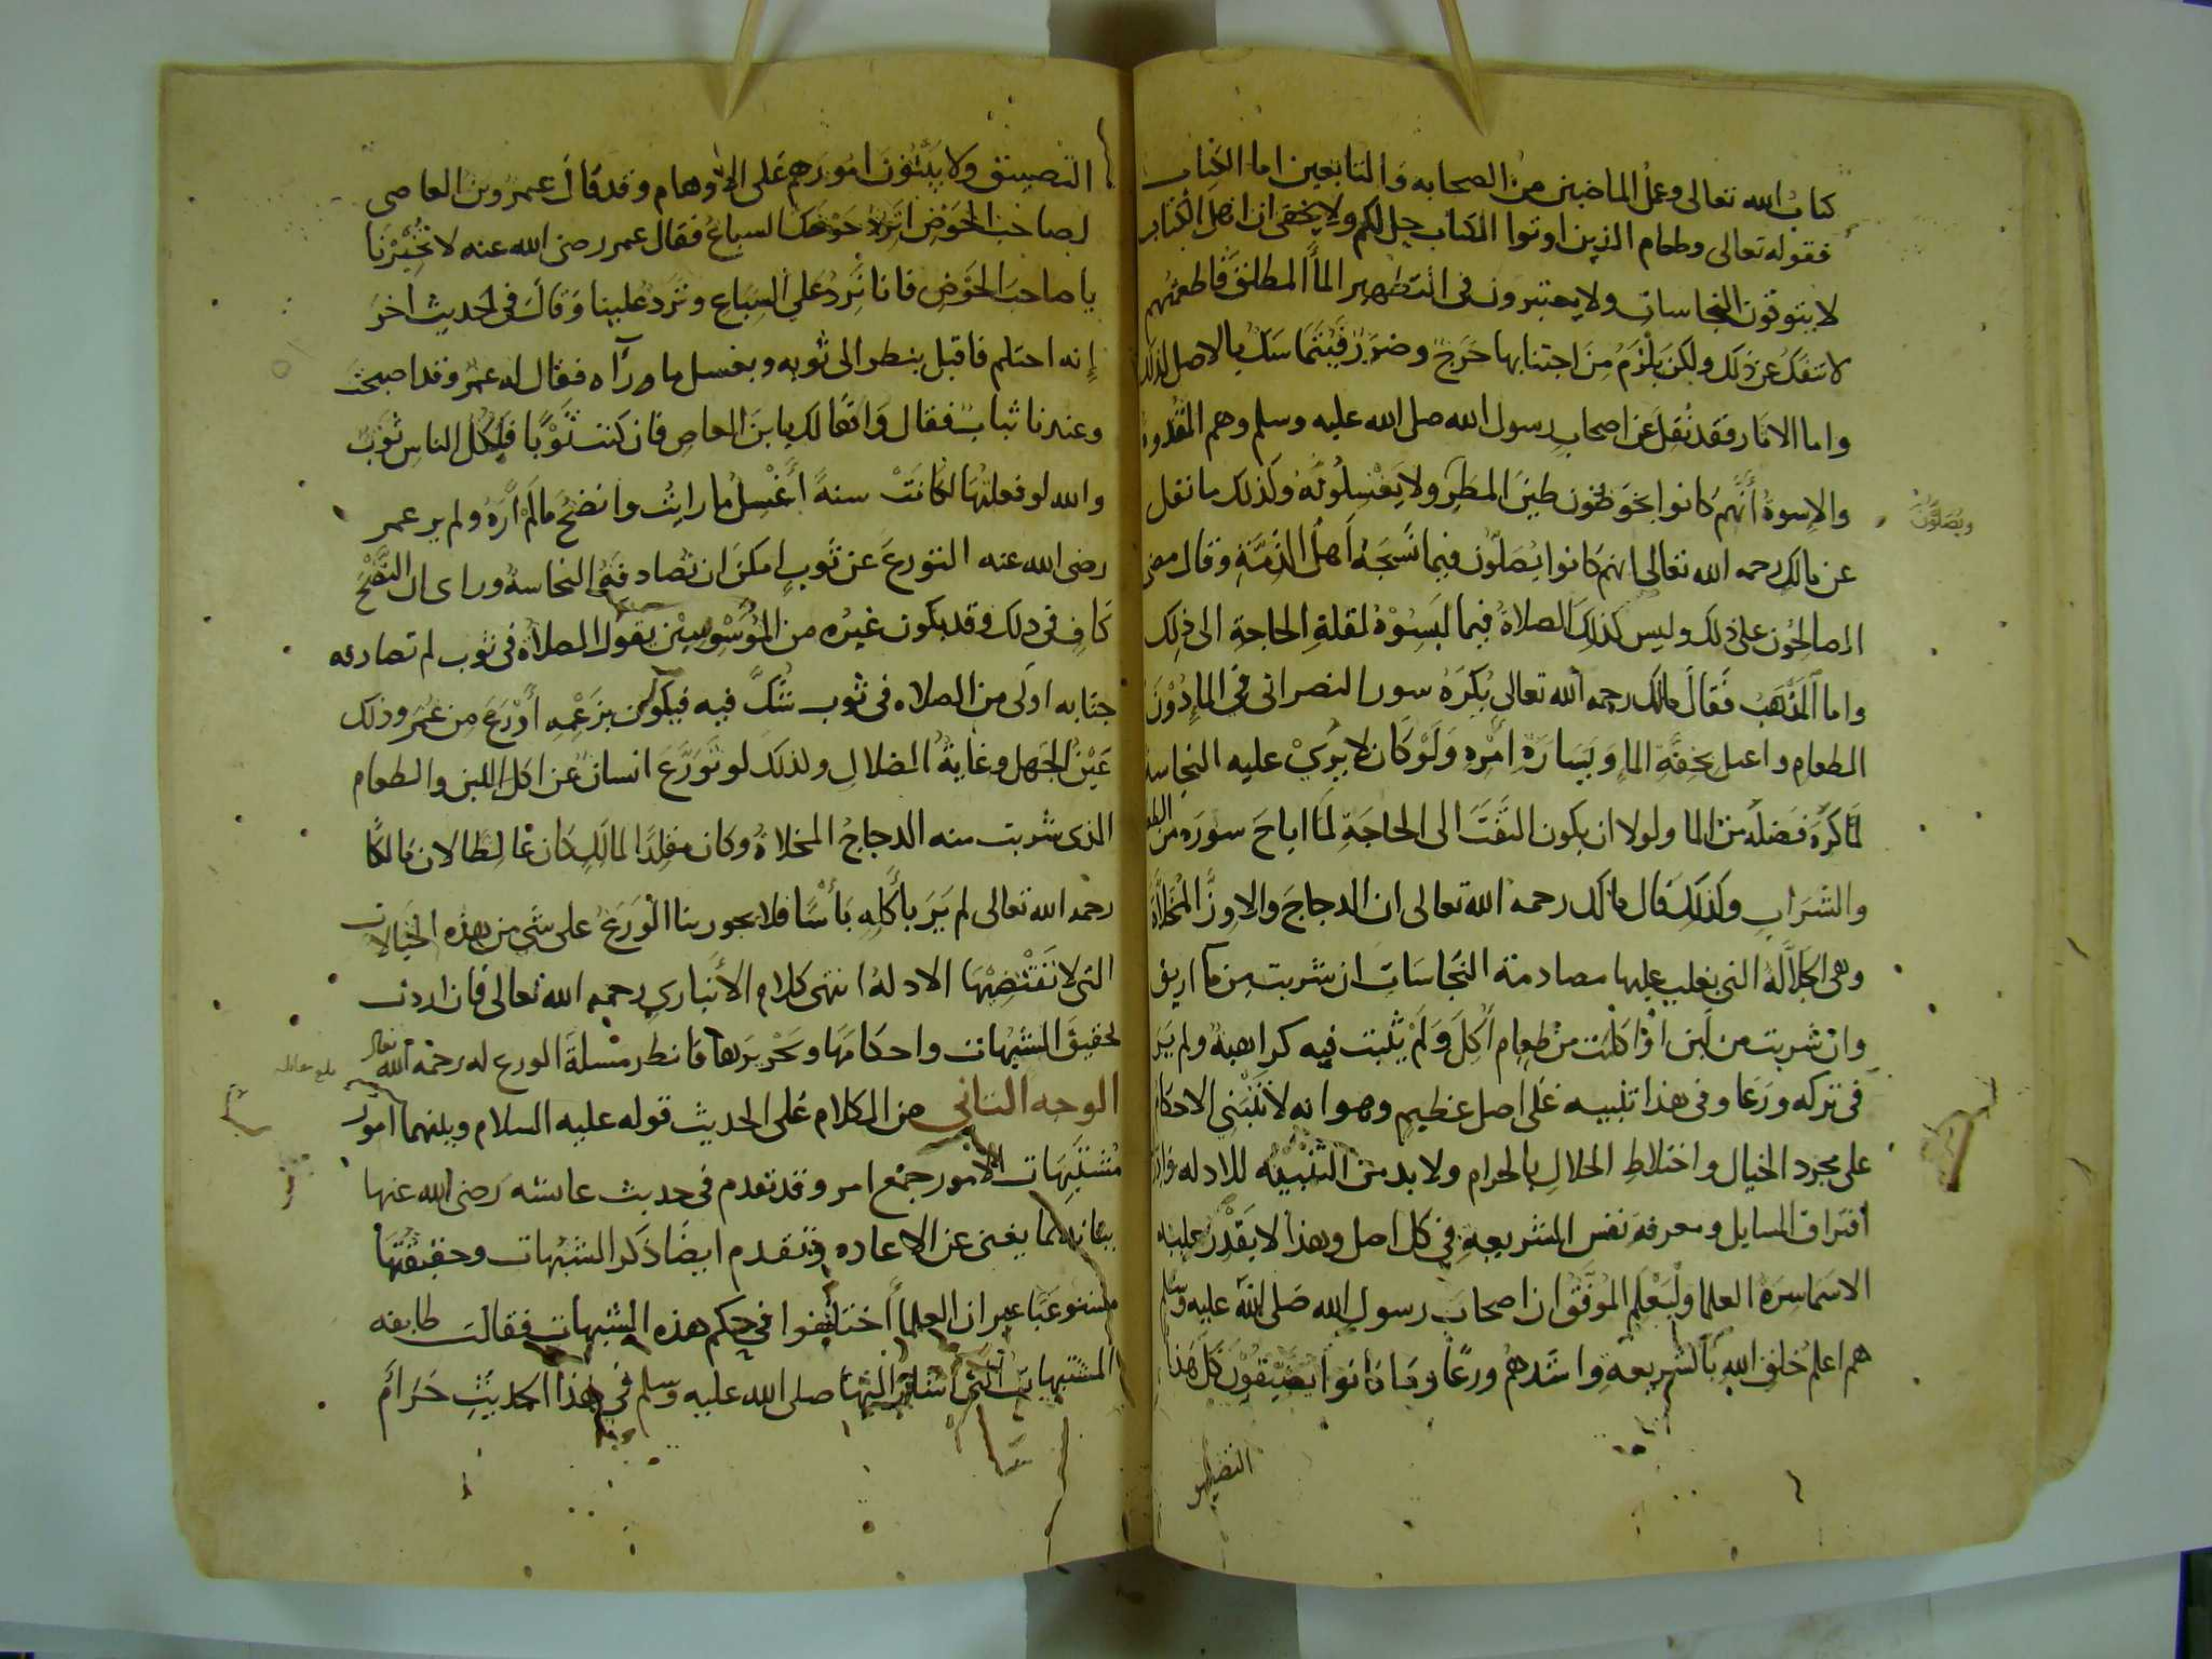 كتاب الله تعالى وعمل الماضين من الصحابه والتابعين اما الكتاب
فقوله تعالى وطعام الذين اوتوا الكتاب حل لكم ولا يخفى ان اهل الكتاب
لا يتوقون النجاسات ولا يعتبرون في التطهير الماء المطلق فاطعمتهم
لا تنفك عن ذلك ولكن يلزم من اجتنابها حرج وضرر فيتماسك بالاصل لذلك
واما الاثار فقد نقل عن اصحاب رسول الله صلى الله عليه وسلم وهم القدوة
والاسوة أنهم كانوا يخوضون طين المطر ولا يغسلونه وكذلك ما نقل
ويصلون
عن مالك رحمه الله تعالى انهم كانوا يصلون فيما نسجه اهل الذمة وقال مضى
الصالحون على ذلك وليس كذلك الصلاة فيما لبسوه لقلة الحاجة الى ذلك
واما المذهب فقال مالك رحمه الله تعالى يكره سور النصراني في الماء دون
الطعام واعمل بخفة الماء ويسارة امره ولو كان لا يرى عليه النجاسة
لما كره فضله من الما ولولا ان يكون التفت الى الحاجة لما اباح سوره من الطعام
والشراب وكذلك قال مالك رحمه الله تعالى ان الدجاج والاوز المخلاة
وهي الجلالة التي يغلب عليها مصادمة النجاسات ان شربت من ما اريق
وان شربت من لبن او اكلت من طعام أكل ولم يثبت فيه كراهية ولم ير
في تركه ورعا وفي هذا تنبيه على اصل عظيم وهو انه لا تنبني الاحكام
على مجرد الخيال واختلاط الحلال بالحرام ولا بد من التنبيه للادله
افتراق المسايل ومعرفة نفس الشريعة في كل اصل وهذا لا يقدر عليه
الا سماسرة العلما وليعلم الموفق ان اصحاب رسول الله صلى الله عليه وسلم
هم اعلم خلق الله بالشريعة واشدهم ورعا وما كانوا يضيقون كل هذا
التضييق
التضييق ولا يبنون امورهم على الاوهام وقد قال عمرو بن العاصي
لصاحب الحوض اترد حوضك السباع فقال عمر رضي الله عنه لا تخبرنا
يا صاحب الحوض فانا نرد على السباع وترد علينا وقال في حديث اخر
إنه احتلم فاقبل ينظر الى ثوبه ويغسل ما رآه فقال له عمرو قد اصبحت
وعندنا ثياب فقال واعجا لك يا بن العاص فان كنت ثوبا فلكل الناس ثوب
والله لو فعلتها لكانت سنة أغسل ما رايت وانضح ما لم أره ولم ير عمر
رضى الله عنه التورع عن ثوب امكن ان تصادفه النجاسة وراى ان النضح
كاف في ذلك وقد يكون غيره من الموسوسين يقول الصلاة في ثوب لم تصادفه
جنابه اولى من الصلاه في ثوب شك فيه فيكون بزعمه أورع من عمر وذلك
عين الجهل وغاية الضلال ولذلك لو تورع انسان عن اكل اللبن والطعام
الذى شربت منه الدجاج المخلاة وكان مقلدا لمالك كان غالطا لان مالكا
رحمه الله تعالى لم ير بأكله بأسا فلا يجوز بنا الورع على شي من هذه الخيالات
التي لا تقتضيها الادلة انتهى كلام الأنباري رحمه الله تعالى فان اردت
تحقيق الشبهات واحكامها وتحريرها فانظر مسلة الورع له رحمه الله تعالى
الوجه الثاني من الكلام على الحديث قوله عليه السلام وبينهما امور
مشتبهات الامور جمع امر وقد تقدم في حديث عائشه رضي الله عنها
بيانه بما يغني عن الاعاده وتقدم ايضا ذكر الشبهات وحقيقتها
مستوعبا غير ان العلما اختلفوا في حكم هذه الشبهات فقالت طايفه
المشتبهات التي اشار اليها صلى الله عليه وسلم في هذا الحديث حرام